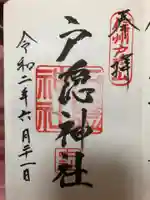 奉拝
戸隠神社
令和二年六月二十一日